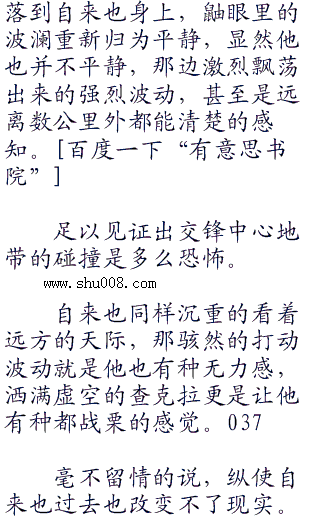 落到自来也身上，鼬眼里的
波澜重新归为平静，显然他
也并不平静，那边激烈飘荡
出来的强烈波动，甚至是远
离数公里外都能清楚的感
知。[百度一下“有意思书
院”]
足以见证出交锋中心地
带的碰撞是多么恐怖。
www.shu008.com
自来也同样沉重的看着
远方的天际，那骇然的打动
波动就是他也有种无力感，
洒满虚空的查克拉更是让他
有种都战栗的感觉。037
毫不留情的说，纵使自
来也过去也改变不了现实。